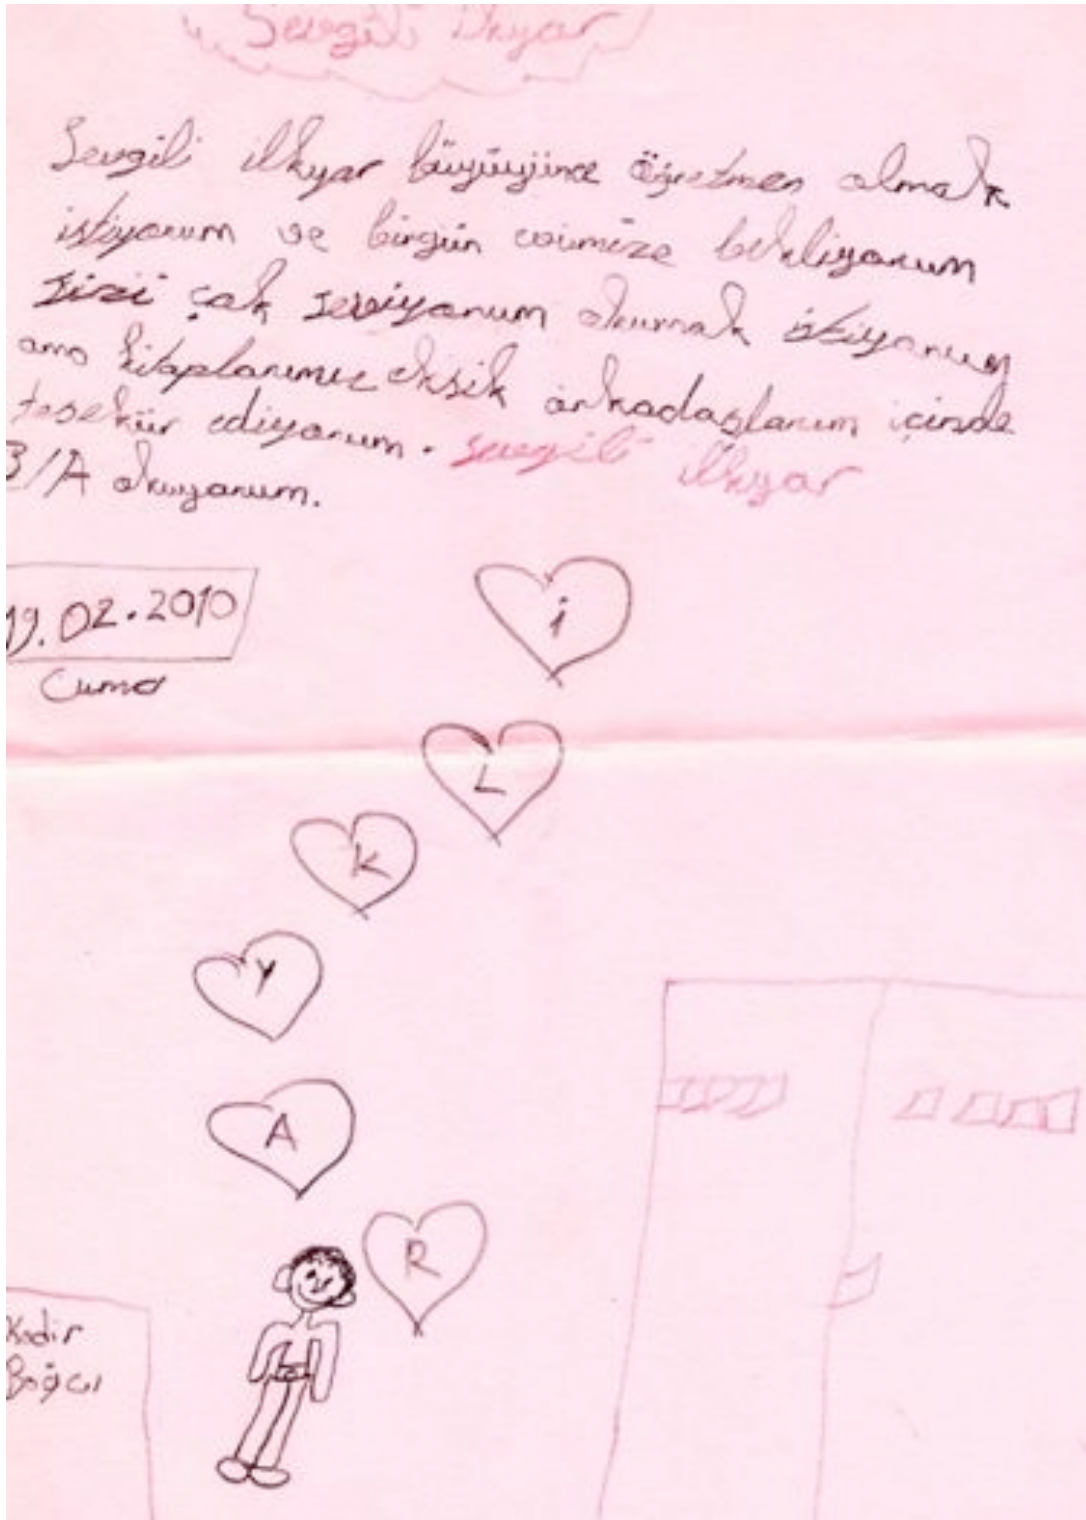 Sevgili ilkyar
Sevgili ilkyar büyüyünce öğretmen olmak
istiyorum ve birgün evimize bekliyorum
sizi çok seviyorum okumak istiyorum
ama kitaplarımız eksik arkadaşlarım içinde
teşekür ediyorum. Sevgili ilkyar
3/A okuyorum.
19.02.2010
Cuma
i
L
K
Y
A
R
Kadir
Bağcı